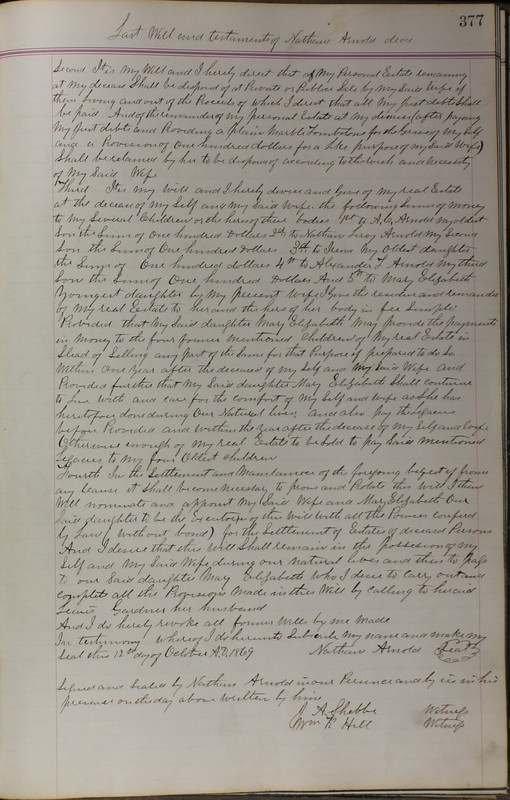 377
Last Will and testaments of Nathan Arnold decd
Second It is My Will and I hereby direct that of My Personal Estate remaining
at my decease Shall be disposed of at Private or Publice Sale by My Said Wife if
then living and out of the Proceeds of which I direct that all My just debts Shall
be paid And of the remainder of my personal Estate at my dimise (after paying
My just debts and Providing a plain Marble Tombstone for the Grave of My Self
and a Provision of One hundred dollars for a like purpose of my Said Wife)
Shall be retained by her to be disposed of according to the wish and necessity
of My Said Wife
Third It is my Will and I hereby devise and Give of my real Estate
at the decease of My Self and My Said Wife the following Sums of money
to My Several Children or the heirs of their bodies 1st to A. G. Arnold my oldest
Son the Sum of One hundred Dollars 2nd to Nathan Arnold My Second
Son the Sum of One hundred Dollars 3rd to Irena My Oldest daughter
the Sum of One hundred dollars 4th to Alexander T Arnold My third
Son the Sum of One hundred Dollars And 5th to Mary Elizabeth
Youngest daughter by My present Wife I Give the residue and remainder
of My real Estate to her and the heirs of her body in fee Simple
Provided that My Said daughter Mary Elizabeth May provide the payments
in Money to the four former mentioned Children of My real Estate in
Stead of Selling any part of the Same for that Purpose if prepared to do So
Within One Year after the decease of my Self and My Said Wife And
Provided further that My Said daughter Mary Elizabeth Shall continue
to live With and care for the comfort of My Self and wife as She has
heretofore done during Our Natural lives And also pay the legacies
before Provided and Within the Year after the decease of My Self and Wife
Otherwise enough of My real Estate to be sold to pay Said mentioned
legacies to My four Oldest children
Fourth In the Settlement and of the foregoing bequest if from
any cause it Shall become necessary to prove and Probate this Will I then
Will nominate and appoint My Said Wife and Mary Elizabeth Our
Said daughter to be the Executors of this Will With all the Powers confered
by Law (Without bond) for the Settlement of Estates of deceased Persons
And I desire that this Will Shall remain in the possession of my
Self and My Said Wife during our natural lives and then to pass
to our Said daughter Mary Elizabeth Who I desire to carry out and
complete all the Provisions Made in this Will by calling to her aid
Lewis Gardner her husband
And I do hereby revoke all former Wills by me Made
In testimony Whereof I do hereunto Subscribe My name and make my
Seal this 12th day of October A.D. 1869 Nathan Arnold Seal
Signed and Sealed by Nathan Arnold in our Presence and by us in his
presence on the day above written by him
J. A. Witness
Wm R Hill Witness